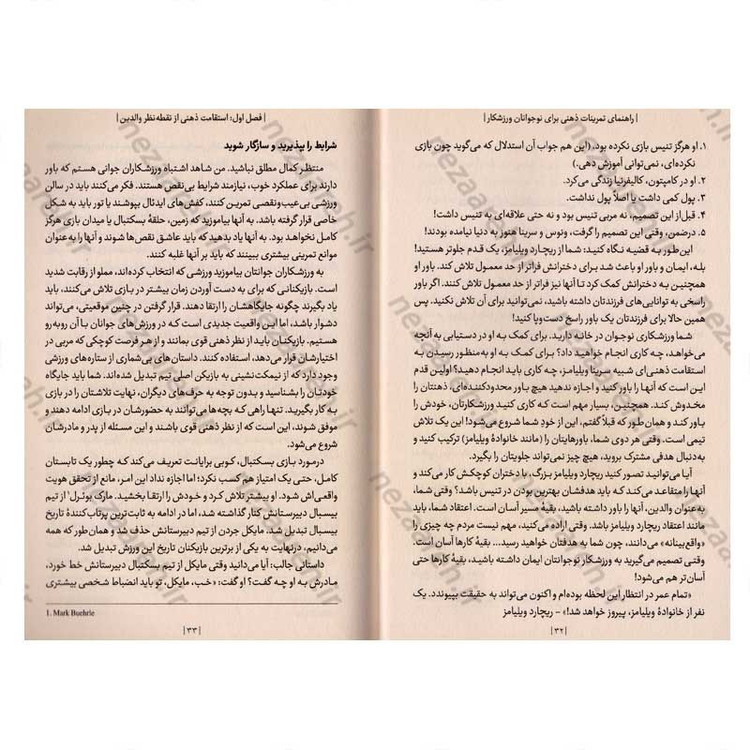 | راهنمای تمرینات ذهنی برای نوجوانان ورزشکار |
۱. او هرگز تنیس بازی نکرده بود. (این هم جواب آن استدلال که می‌گوید چون بازی
نکرده‌ای، نمی‌توانی آموزش دهی.)
۲. او در کامپتون، کالیفرنیا زندگی می‌کرد.
۳. پول کمی داشت یا اصلاً پول نداشت.
۴. قبل از این تصمیم، نه مربی تنیس بود و نه حتی علاقه‌ای به تنیس داشت!
۵. درضمن، وقتی این تصمیم را گرفت، ونوس و سرینا هنوز به دنیا نیامده بودند!
این‌طور به قضیه نگاه کنید: شما از ریچارد ویلیامز، یک قدم جلوتر هستید!
بله، ایمان و باور او باعث شد برای دخترانش فراتر از حد معمول تلاش کند. باور او
همچنین به دخترانش کمک کرد تا آنها نیز فراتر از حد معمول تلاش کنند. اگر باور
راسخی به توانایی‌های فرزندتان داشته باشید، نمی‌توانید برای آن تلاش نکنید. پس
همین حالا برای فرزندتان یک باور راسخ دست‌وپا کنید!
شما ورزشکاری نوجوان در خانه دارید. برای کمک به او در دستیابی به آنچه
می‌خواهد، چه کاری انجام خواهید داد؟ برای کمک به او به‌منظور رسیدن به
استقامت ذهنی‌ای شبیه سرینا ویلیامز، چه کاری باید انجام دهید؟ اولین قدم
این است که آنها را باور کنید و اجازه ندهید هیچ باور محدودکننده‌ای، ذهنتان را
مخدوش کند. همچنین، بسیار مهم است که کاری کنید ورزشکارتان، خودش را
باور کند و همان‌طور که قبلاً گفتم، این از خودِ شما شروع می‌شود! این یک تلاش
تیمی است. وقتی هر دوی شما، باورهایتان را (مانند خانوادهٔ ویلیامز) ترکیب کنید و
به‌دنبال هدفی مشترک بروید، هیچ چیز نمی‌تواند جلویتان را بگیرد.
آیا می‌توانید تصور کنید ریچارد ویلیامز بزرگ، با دختران کوچکش کار می‌کند و
آنها را متقاعد می‌کند که باید هدفشان بهترین بودن در تنیس باشد؟ وقتی شما،
به‌عنوان والدین، آنها را باور داشته باشید، بقیهٔ مسیر آسان است. اعتقاد شما، باید
مانند اعتقاد ریچارد ویلیامز باشد. وقتی اراده می‌کنید، مهم نیست مردم چه چیزی را
«واقع‌بینانه» می‌دانند، چون شما به هدفتان خواهید رسید... بقیهٔ کارها آسان است.
وقتی تصمیم می‌گیرید به ورزشکار نوجوانتان ایمان داشته باشید، بقیهٔ کارها حتی
آسان‌تر هم می‌شود!
«تمام عمر در انتظار این لحظه بوده‌ام و اکنون می‌تواند به حقیقت بپیوندد. یک
نفر از خانوادهٔ ویلیامز، پیروز خواهد شد!» - ریچارد ویلیامز
| ۳۲ |
| فصل اول: استقامت ذهنی از نقطه‌نظر والدین |
شرایط را بپذیرید و سازگار شوید
منتظر کمال مطلق نباشید. من شاهد اشتباه ورزشکاران جوانی هستم که باور
دارند برای عملکرد خوب، نیازمند شرایط بی‌نقص هستند. فکر می‌کنند باید در سالن
ورزشی بی‌عیب‌ونقصی تمرین کنند، کفش‌های ایدئال بپوشند یا تور باید به شکل
خاصی قرار گرفته باشد. به آنها بیاموزید که زمین، حلقهٔ بسکتبال یا میدان بازی هرگز
کامل نخواهد بود. به آنها یاد بدهید که باید عاشق نقص‌ها شوند و آنها را به‌عنوان
موانع تمرینی بیشتری ببینند که باید بر آنها غلبه کنند.
به ورزشکاران جوانتان بیاموزید ورزشی که انتخاب کرده‌اند، مملو از رقابت شدید
است. بازیکنانی که برای به دست آوردن زمان بیشتر در بازی تلاش می‌کنند، باید
یاد بگیرند چگونه جایگاهشان را ارتقا دهند. قرار گرفتن در چنین موقعیتی، می‌تواند
دشوار باشد، اما این واقعیت جدیدی است کـه در ورزش‌های جوانان با آن روبه‌رو
هستیم. بازیکنان باید از نظر ذهنی قوی بمانند و از هر فرصت کوچکی که مربی در
اختیارشان قرار می‌دهد، استفاده کنند. داستان‌های بی‌شماری از ستاره‌های ورزشی
وجود دارد که از نیمکت‌نشینی به بازیکن اصلی تیم تبدیل شده‌اند. شما باید جایگاه
خودتان را بشناسید و بدون توجه به حرف‌های دیگران، نهایت تلاشتان را در بازی
به کار بگیرید. تنها راهی که بچه‌ها می‌توانند به حضورشان در بازی ادامه دهند و
موفق شوند، این است که از نظر ذهنی قوی باشند و این مسئله از پدر و مادرشان
شروع می‌شود.
درمورد بازی بسکتبال، کوبی برایانت تعریف می‌کند که چطور یک تابستان
کامل، حتی یک امتیاز هم کسب نکرد؛ اما اجازه نداد این امر، مانع از تحقق هویت
واقعی‌اش شود. او بیشتر تلاش کرد و خودش را ارتقا بخشید. مارک بوئرل¹ از تیم
بیسبال دبیرستانش کنار گذاشته شد، اما در ادامه به ثابت‌ترین پرتاب‌کنندهٔ تاریخ
بیسبال تبدیل شد. مایکل جردن از تیم دبیرستانش حذف شد و همان‌طور که همه
می‌دانیم، درنهایت به یکی از برترین بازیکنان تاریخ این ورزش تبدیل شد.
داستانی جالب: آیا می‌دانید وقتی مایکل از تیم بسکتبال دبیرستانش خط خورد،
مادرش به او چه گفت؟ او گفت: «خب، مایکل، تو باید انضباط شخصی بیشتری
1. Mark Buehrle
| ۳۳ |
nezaareh.ir